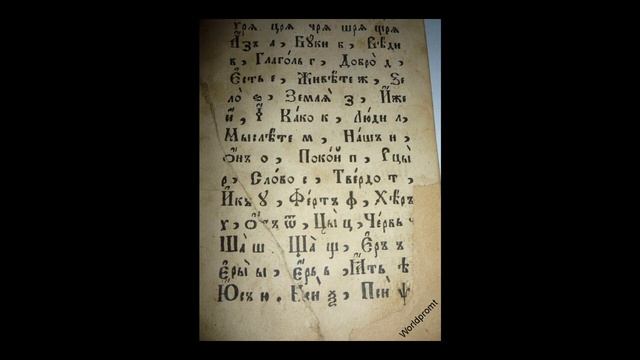 ꙋрѧ црѧ чрѧ шрѧ щрѧ
А҆́зъ а, Бꙋки б, Вѣ́ди
в, Глаго́ль г, Добро̀ д,
Є҆́сть е, Живѣ́те ж, Ѕѣ
ло̀ ѕ, Землѧ̀ з, И҆́же
и҆, І҆ Ка́ко к, Лю́ди л,
Мыслѣ́те м, На́шъ н,
Ѻ҆́нъ о, Поко́й п, Рцы̀
р, Сло́во с, Тве́рдо т,
И҆́къ ꙋ, Фе́ртъ ф, Хѣ́ръ
х, Ѿ, Цы̀ ц, Че́рвь
Ша̀ ш Ща̀ щ, Е҆́ръ ъ
Е҆ры̀ ы, Е҆́рь ь, Ꙗ҆́ть ѣ
Ю҆́съ ю. Ѯ, Псѝ ѱ
Worldpromt